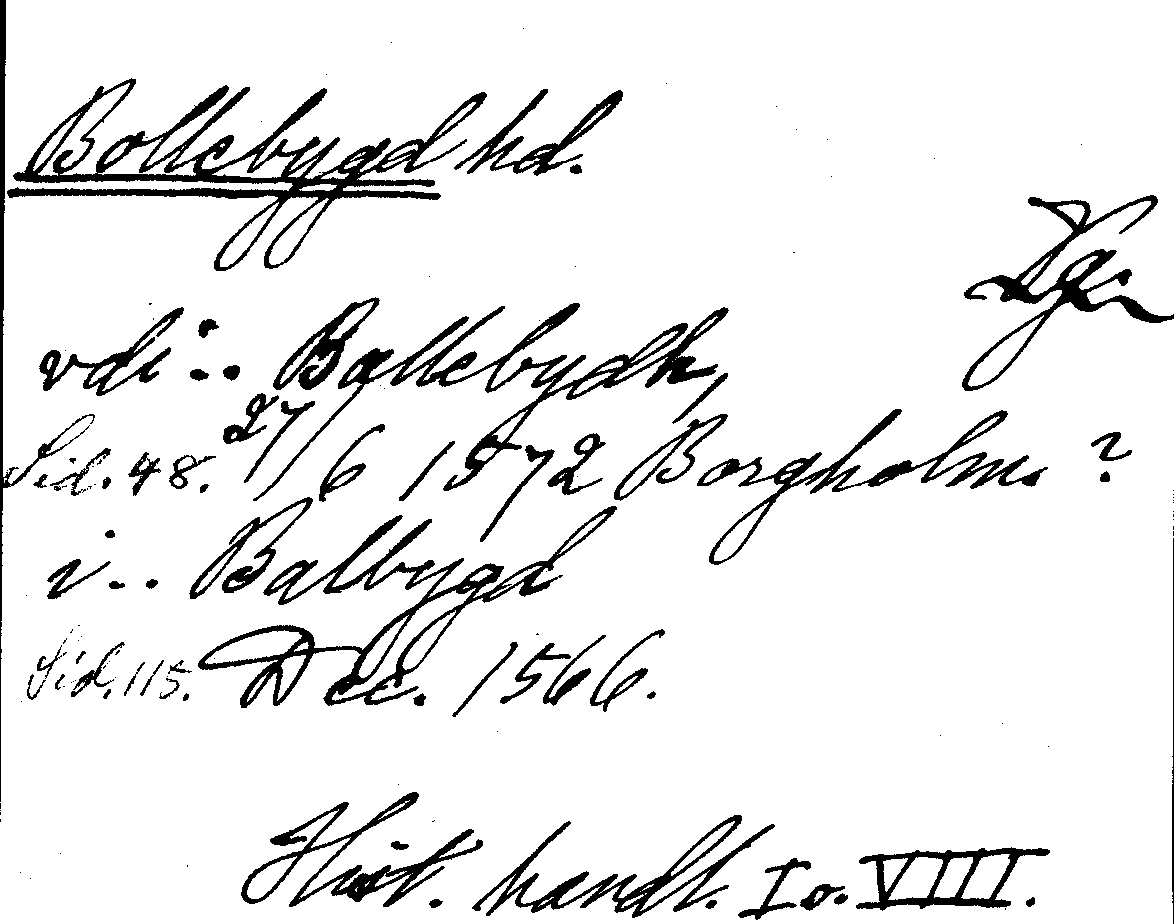 Bollebygd hd.
Vg.
vdi .. Ballebydh,
Sid. 48. 27/6 1572 Borgholm. ?
i .. Balbygd
Sid. 115. Dec. 1566.
Hist. handl. I o. VIII.